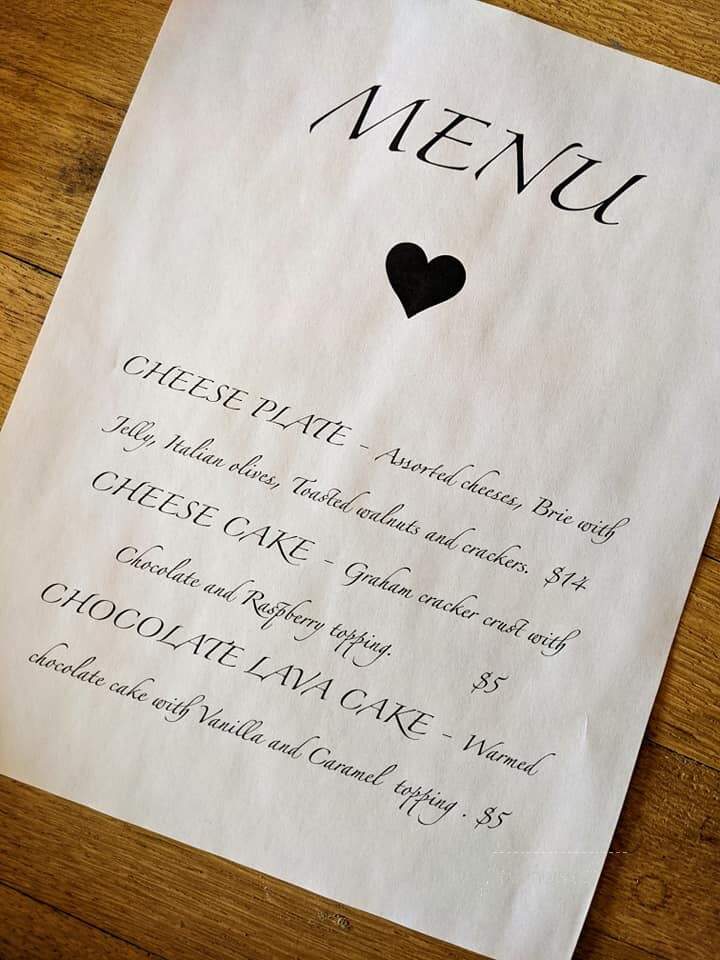 MENU
CHEESE PLATE - Assorted cheeses, Brie with
Jelly, Italian olives, Toasted walnuts and crackers. $14
CHEESE CAKE - Graham cracker crust with
Chocolate and Raspberry topping. $5
CHOCOLATE LAVA CAKE - Warmed
chocolate cake with Vanilla and Caramel topping . $5